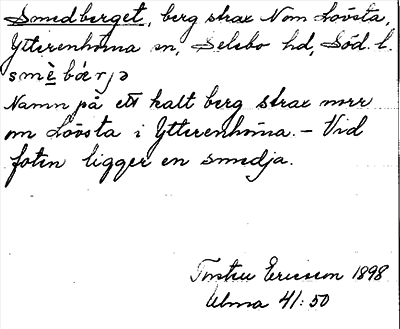 Smedberget, berg strax N om Lövsta,
Ytterenhörna sn, Selebo hd, Söd. l.
smè bærjə
Namn på ett kalt berg strax norr
om Lövsta i Ytterenhörna. – Vid
foten ligger en smedja.
Torsten Ericsson 1898
Ulma 41:50